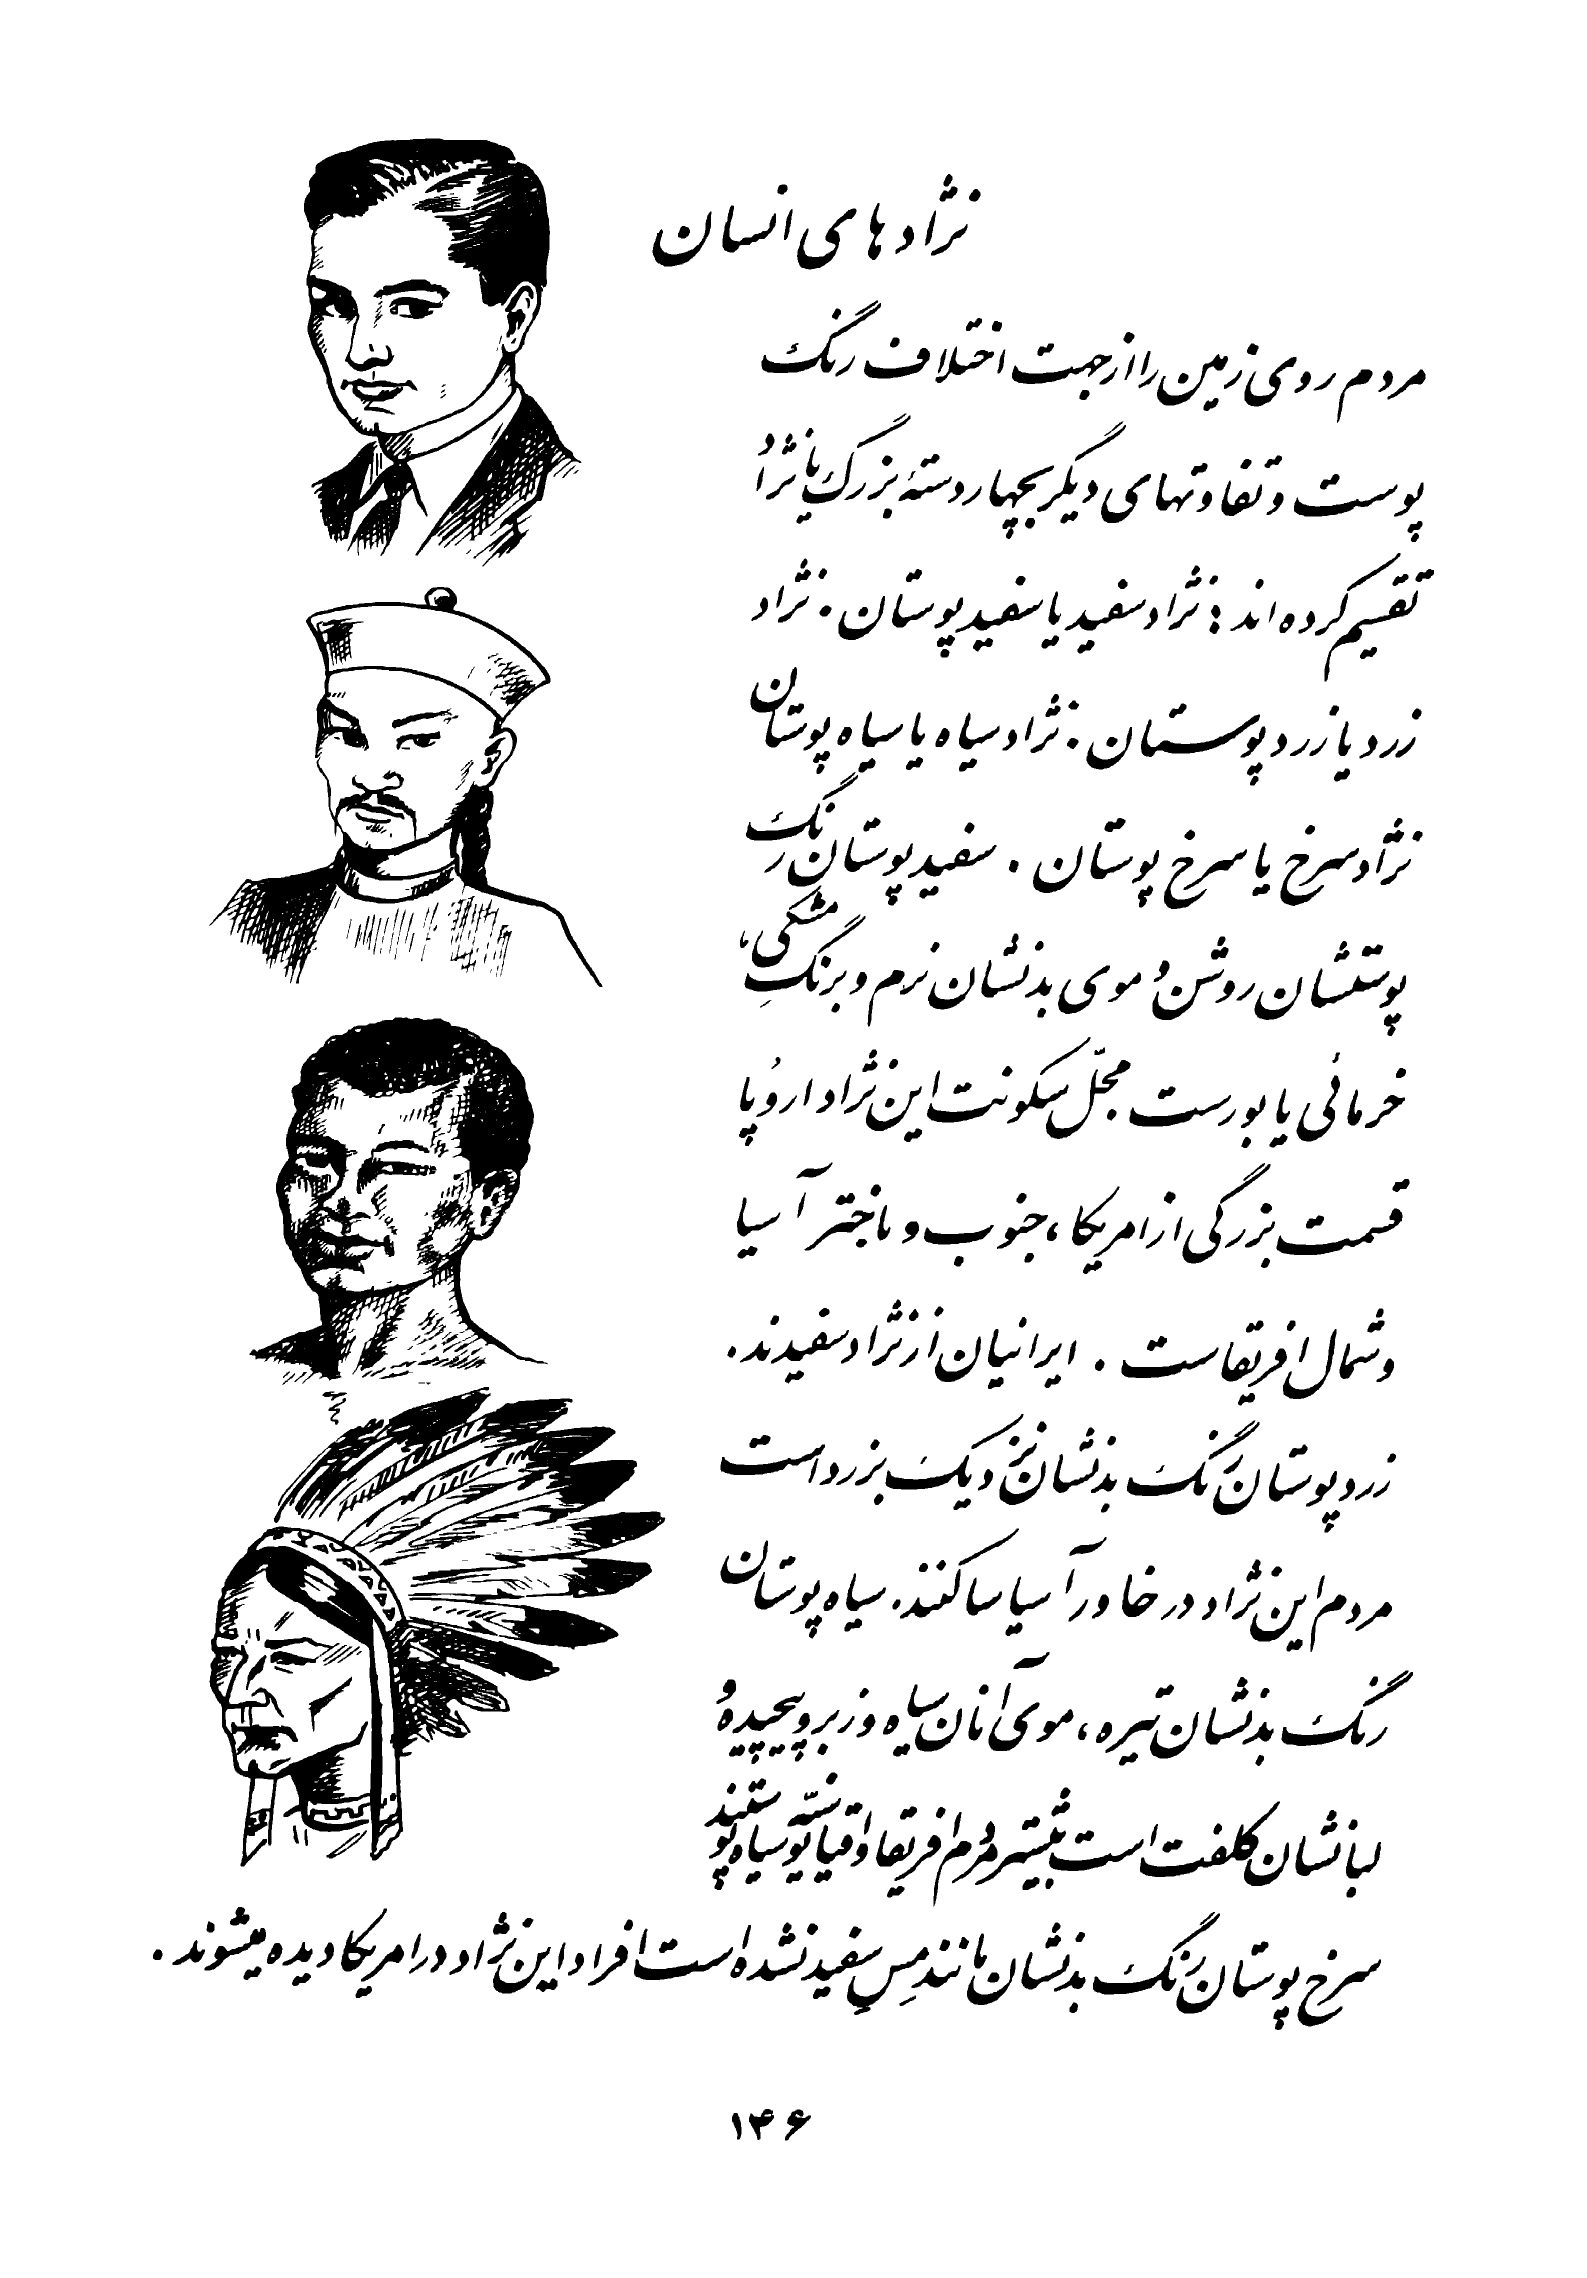 نژادهای انسان
مردم روی زمین را از جهت اختلاف رنگ
پوست و تفاوتهای دیگر بچهار دستهٔ بزرگ یا نژاد
تقسیم کرده اند : نژاد سفید یا سفید پوستان . نژاد
زرد یا زرد پوستان . نژاد سیاه یا سیاه پوستان
نژاد سرخ یا سرخ پوستان . سفید پوستان رنگ
پوستشان روشن و موی بدنشان نرم و برنگِ مشکی ،
خرمائی یا بورست محلّ سکونت این نژاد اروُپا
قسمت بزرگی از امریکا ، جنوب و باختر آسیا
و شمال افریقاست . ایرانیان از نژاد سفیدند .
زرد پوستان رنگ بدنشان نزدیک بزرد است
مردم این نژاد در خاور آسیا ساکنند . سیاه پوستان
رنگ بدنشان تیره ، موی آنان سیاه و زبر و پیچیده و
لبانشان کلفت است بیشتر مردم افریقا و اقیانوسیّه سیاه پوستند
سرخ پوستان رنگ بدنشان مانند مِسِ سفید نشده است افراد این نژاد در امریکا دیده میشوند .
۱۴۶